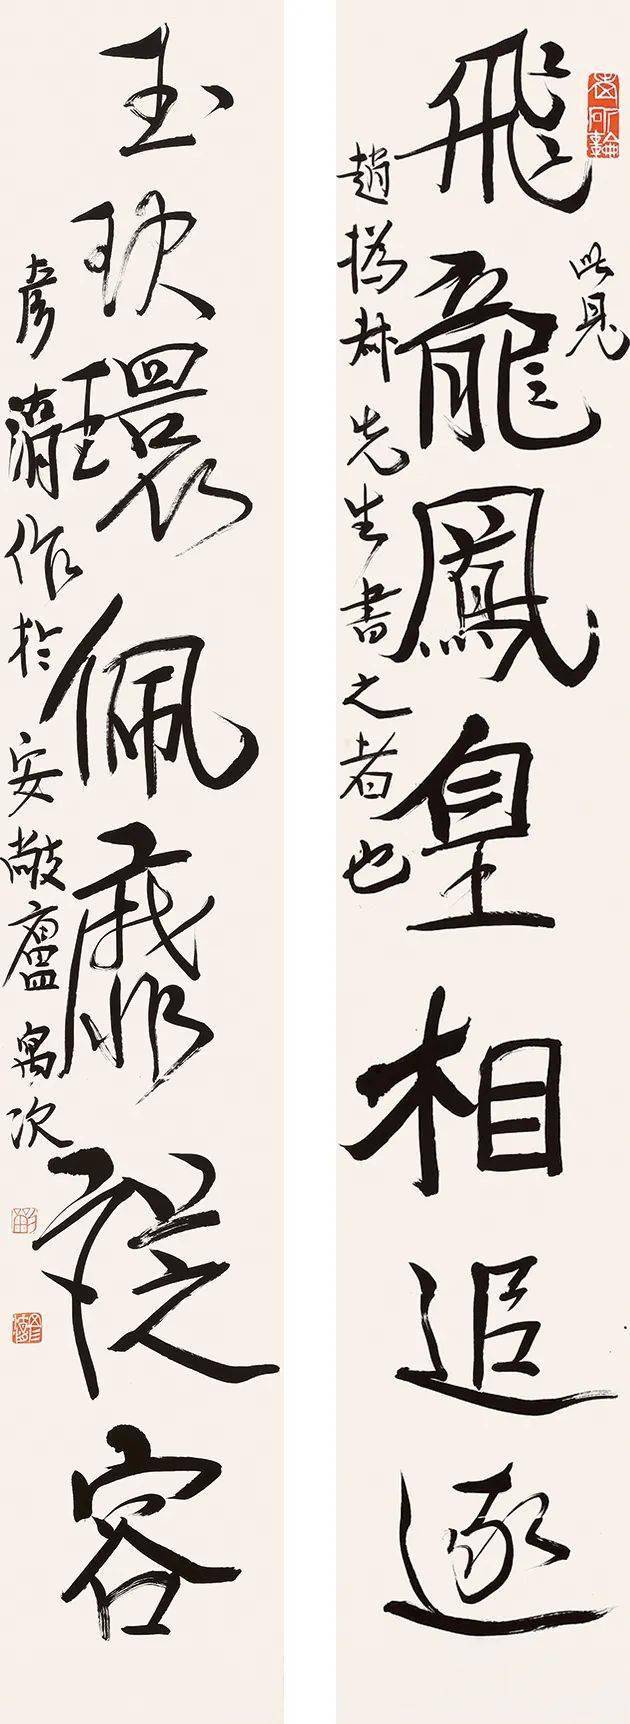 飛龍鳳皇相追逐
此見
趙撝叔先生書之者也
玉玦環佩靡從容
彥作於安敞廬寓次